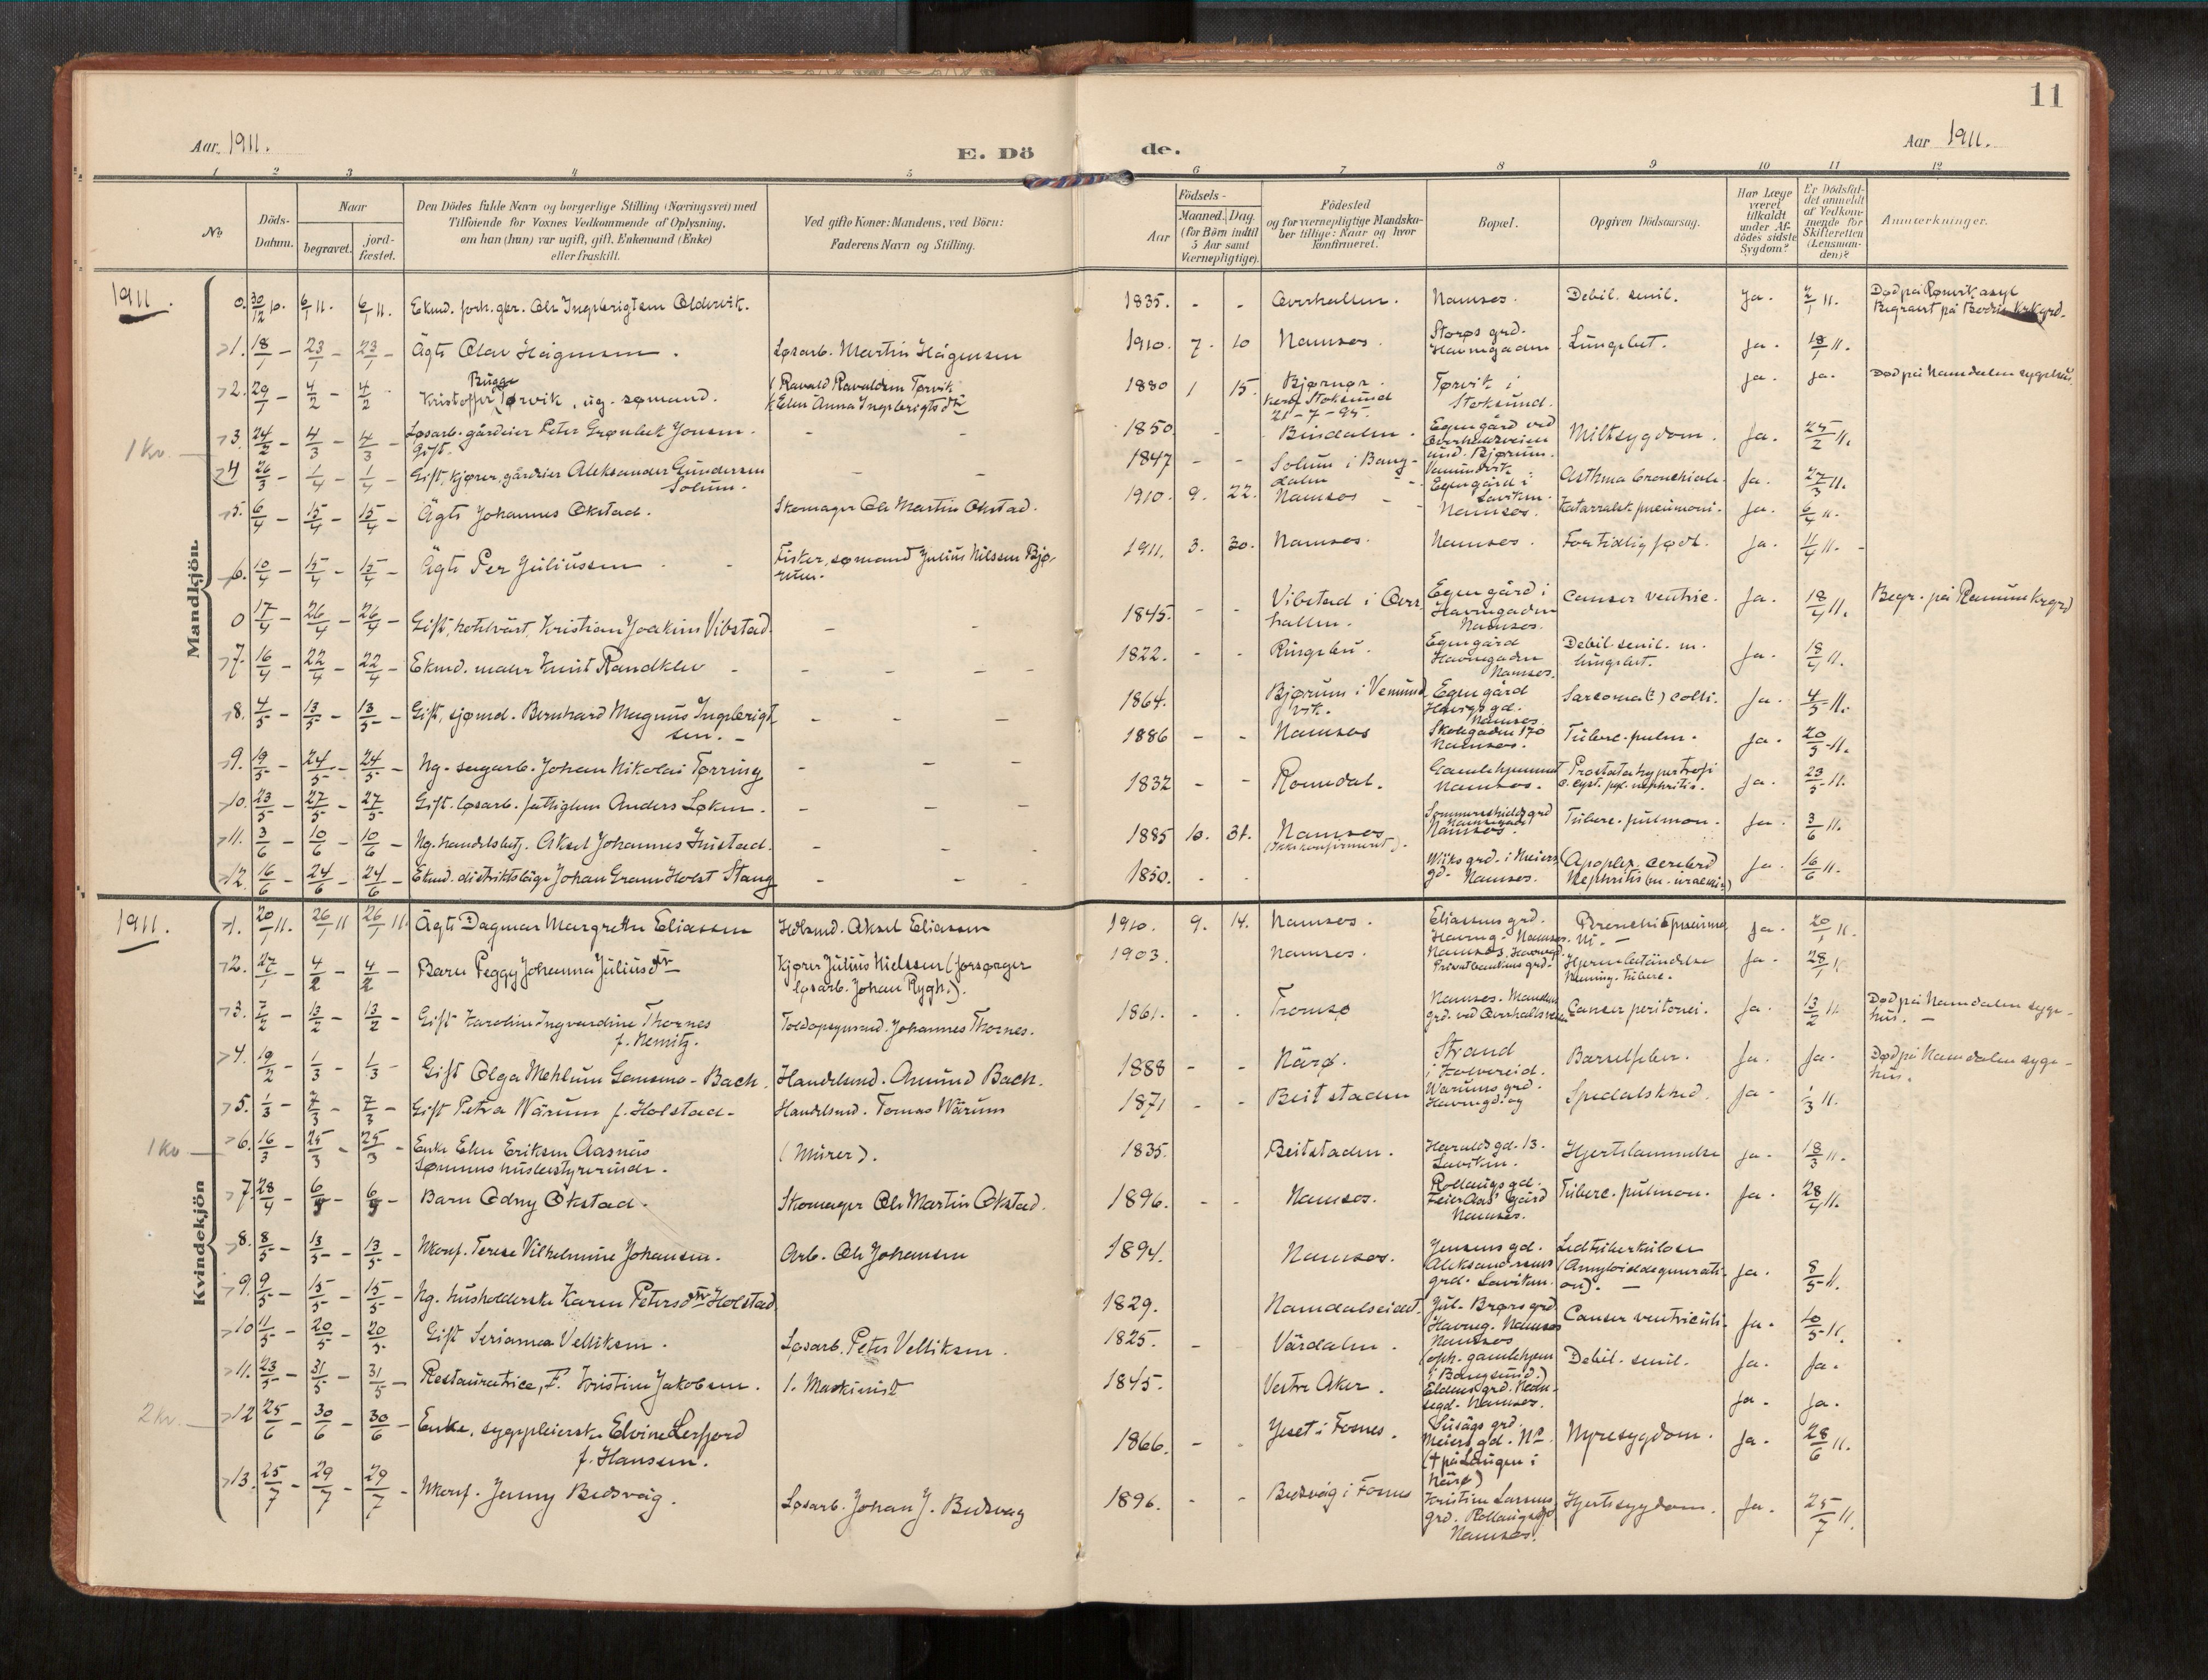 11
Aar 1911.
E. Dö de.
Aar 1911.
1 2 3 4 5 6 7 8 9 10 11 12
No
Döds-Datum.
Naar
begravet.
jord-fæstet.
Den Dödes fulde Navn og borgerlige Stilling (Næringsvei) med
Tilföiende for Voxnes Vedkommende af Oplysning,
om han (hun) var ugift, gift, Enkemand (Enke)
eller fraskilt.
Ved gifte Koner: Mandens, ved Börn:
Faderens Navn og Stilling.
Aar
Födsels-
Maaned. Dag.
(for Börn indtil
5 Aar samt
Værnepligtige).
Födested
og for værnepligtige Mandska-
ber tillige: Naar og hvor
konfirmeret.
Bopæl.
Opgiven Dödsaarsag.
Har Læge
været
tilkaldt
under Af-
dödes sidste
Sygdom?
Er Dödsfal-
det anmeldt
af Vedkom-
mende for
Skifteretten
(Lensman-
den)?
Anmærkninger.
1911.
Mandkjön.
0. 30/12 10. 6/1 11. 6/1 11. Ekmd. forh. gbr. Ole Ingebrigtsen Oldervik. 1835. - - Overhallen. Namsos. Debil. senil. Ja. 2/1 11. Død på Rønvik asyl
Begravet på Bodin krkgrd.
1. 18/1 - 23/1 - 23/1 - Ägte Olav Hågensen. Løsarb. Martin Hågensen 1910. 7. 10 Namsos. Storøs grd.
Havnegaden Lungebet. Ja. 18/1 11.
2. 29/1 - 4/2 - 4/2 Bugge
Kristoffer Tørvik, ug. sømand. (Ravald Ravaldsen Tørvik
Elen Anna Ingebrigtsdtr 1880 1 15. Bjørnør.
konf. Stoksund
21-7-95. Tørvik i
Stoksund. Ja. Ja. Død på Namdalen sygehus.
1 kv.
3. 24/2 - 4/3 - 4/3 - Løsarb. gårdeier Peter Grønbek Jonsen.
Gift. 1850. - Bindalen. Egen gård ved
Overhallsveien Miltsygdom. Ja. 25/2 11.
4 26/3 - 1/4 - 1/4 - Gift, kjører, gårdeier Aleksander Gundersen
Solum. 1847 - - Solum i Bang-
dalen Egen gård i
Laviken. Asthma bronchiale. Ja. 27/3 11.
5. 6/4 - 15/4 - 15/4 - Ägte Johannes Økstad. Skomager Ole Martin Økstad. 1910. 9. 22. Namsos - Namsos. Katarralsk pneumoni. Ja. 6/4 11.
6. 10/4 - 15/4 - 15/4 - Ägte Per Juliussen Fisker, sømand Julius Nilssen Bjø-
rum. 1911. 3. 30. Namsos. Namsos. For tidlig født. Ja. 11/4 11.
0 17/4 - 26/4 - 26/4 - Gift, hotelvärt, Kristian Joakim Vibstad. 1845. - - Vibstad i Over
hallen. Egen gård i
Havnegaden
Namsos. Cancer ventric. Ja. 18/4 11. Begr. på Ranum krgrd
7. 16/4 - 22/4 - 22/4 - Ekmd. maler Knut Randklev 1822. - - Ringebu. Egen gård
Havnegaden
Namsos. Debil. senil. m.
lungebet. Ja. 18/4 11.
8. 4/5 - 13/5 - 13/5 - Gift, sjømd. Bernhard Magnus Ingebrigt
sen. 1864. Bjørum i Vemund
vik. Egen gård
Namsos. Sarcoma(t) colli. Ja. 4/5 11.
9. 19/5 - 24/5 - 24/5 - Ug. sagarb. Johan Nikolai Tørring 1886 - - Namsos Skolegaden 170
Namsos. Tuberc. pulm. Ja. 20/5 11.
10. 23/5 - 27/5 - 27/5 - Gift. løsarb. fattiglem Anders Løken. 1832 - - Romsdal. Gamlehjemmet
Namsos. Prostatahypertrofi
c. cyst. pyl. nephritis. Ja. 23/5 11.
11. 3/6 - 10/6 - 10/6 - Ug. handelsbetj. Aksel Johannes Fristad. 1885 10. 31. Namsos
(Ikke konfirmeret). Sommerschields grd
Namsos. Tuberc. pulmon. Ja. 3/6 11.
12. 16/6 - 24/6 - 24/6 - Ekmd. distriktslæge Johan Gram Holst Stang 1850. - - Wiiks grd. i Meiers
gd. Namsos. (Apoplex. cerebri
Nephritis (m. uraemi) Ja. 16/6 11.
1911.
Kvindekjön
1. 20/1 11. 26/1 11 26/1 11. Ägte Dagmar Margrethe Eliassen Hdlsmd. Aksel Eliassen 1910. 9. 14. Namsos. Eliassens grd.
Havneg. Namsos. Bronchiepneumo
ni. Ja. 20/1 11.
2. 27/1 - 4/2 - 4/2 - Barn Peggy Johanna Juliusdtr Kjører Julius Nielssen (forsørger
løsarb. Johan Rygh.). 1903. Namsos. Namsos, Havnegd.
Privatbankens grd. Hjernebetändelse
Mening. tuberc. Ja. 28/1 11.
3. 7/2 - 13/2 - 13/2 - Gift Karoline Ingvardine Thornes
f. Nemitz. Toldopsynsmd. Johannes Thornes. 1861. - - Tromsø Namsos.
grd. ved Overhallsveien Cancer peritonei. Ja. 13/2 11. Død på Namdalen syge-
hus.
4. 19/2 - 1/3 - 1/3 - Gift Olga Mehlum Gansmo-Bach. Handelsmd. Amund Bach. 1888 - - Närø. Strand
i Kolvereid. Barselfeber. Ja. Ja. Død på Namdalen syge-
hus.
5. 1/3 - 7/3 - 7/3 - Gift Petra Wärum f. Holstad. Handelsmd. Tomas Wärum 1871 - - Beitstaden Wärums grd.
Havnegd. Spedalskhed. Ja. 1/3 11.
1 kv
6. 16/3 - 25/3 - 25/3 - Enke Elen Eriksen Aasnäs
Sønnens husbestyrerinde. (Murer). 1835. Beitstaden. Haralds gd. 13.
Laviken. Hjertelammelse Ja. 18/3 11.
7. 28/4 - 6/5 - 6/5 - Barn Odny Økstad. Skomager Ole Martin Økstad. 1896. - - Namsos. Rollaugs gd.
Peier Aas' gård
Namsos. Tuberc. pulmon. Ja. 28/4 11.
8. 8/5 - 13/5 - 13/5 - Ukonf. Terese Vilhelmine Johansen. Arb. Ole Johansen 1894. Namsos. Jensens gd.
Aleksandersens
grd. Laviken. Ledtuberkulose
(Amyloiddegenerati-
on). Ja. 8/5 11.
9. 9/5 - 15/5 - 15/5 - Ug. husholderske Karen Petersdtr Holstad 1829. Namdalseidet. Jul. Brørs grd
Havneg. Namsos Cancer ventriculi. Ja. 10/5 11.
10 11/5 - 20/5 - 20/5. Gift Serianna Velliksen. Løsarb. Peter Velliksen. 1825. - Värdalen. Namsos
(oph. gamlehjem
i Bangsund.) Debil. senil. Ja. Ja.
11. 23/5 - 31/5 - 31/5 - Restauratrice, F. Kristine Jakobsen. 1. Maskinist 1845. Vestre Aker. Namsos. Ja. Ja.
2 kv.
12 25/6 - 30/6 - 30/6 - Enke, sygepleierske Elvine Lerfjord
f. Hansen. 1866. - - Jøset i Fosnes. Meiers gd.
i
Närø) Nyresygdom. Ja. 28/6 11.
13. 25/7 - 29/7 - 29/7 - Ukonf. Jenny Bedsvåg. Løsarb. Johan J. Bedsvag 1896. - - Bedsvåg i Fosnes Kristine Larsens
grd. Rollaugsgd
Namsos. Hjertesygdom. Ja. 25/7 11.